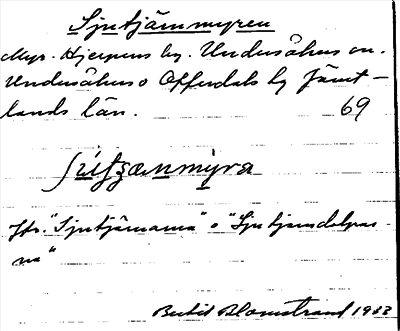 Sjutjärnmyren
Myr. Hjerpens by. Undersåkers sn.
Undersåkers o Offerdals by Jämt-
lands län. 69
Jfr. "Sjutjärnarna" o "Sjutjärndalpar-
na"
Bertil Blomstrand 1933